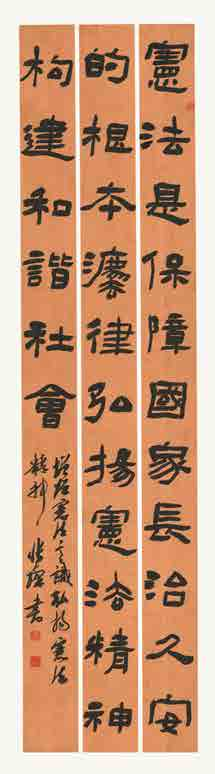 憲法是保障國家長治久安
的根本灋律弘揚憲法精神
构建和諧社會
增强憲法意識弘揚憲法
精神
書